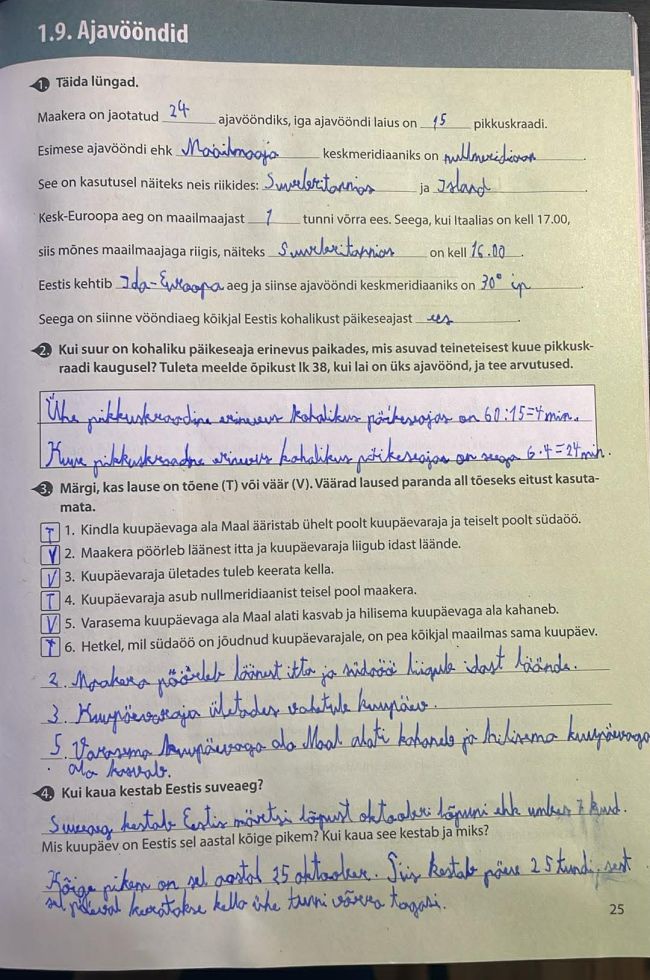 1.9. Ajavööndid
1. Täida lüngad.
Maakera on jaotatud 24 ajavööndiks, iga ajavööndi laius on 15 pikkuskraadi.
Esimese ajavööndi ehk Maailmaaja keskmeridiaaniks on nullmeridiaan.
See on kasutusel näiteks neis riikides: Suurbritannias ja Island.
Kesk-Euroopa aeg on maailmaajast 1 tunni võrra ees. Seega, kui Itaalias on kell 17.00,
siis mõnes maailmaajaga riigis, näiteks Suurbritannias on kell 16.00.
Eestis kehtib Ida-Euroopa aeg ja siinse ajavööndi keskmeridiaaniks on 30° ip.
Seega on siinne vööndiaeg kõikjal Eestis kohalikust päikeseajast ees.
2. Kui suur on kohaliku päikeseaja erinevus paikades, mis asuvad teineteisest kuue pikkusk-
raadi kaugusel? Tuleta meelde õpikust lk 38, kui lai on üks ajavöönd, ja tee arvutused.
Ühe pikkuskraadine erinevus kohalikus päikeseajas on 60:15=4min.
Kuue pikkuskraadne erinevus kohalikus päikeseajas on seega 6·4=24min.
3. Märgi, kas lause on tõene (T) või väär (V). Väärad laused paranda all tõeseks eitust kasuta-
mata.
T 1. Kindla kuupäevaga ala Maal ääristab ühelt poolt kuupäevaraja ja teiselt poolt südaöö.
V 2. Maakera pöörleb läänest itta ja kuupäevaraja liigub idast läände.
V 3. Kuupäevaraja ületades tuleb keerata kella.
T 4. Kuupäevaraja asub nullmeridiaanist teisel pool maakera.
V 5. Varasema kuupäevaga ala Maal alati kasvab ja hilisema kuupäevaga ala kahaneb.
T 6. Hetkel, mil südaöö on jõudnud kuupäevarajale, on pea kõikjal maailmas sama kuupäev.
2. Maakera pöörleb läänest itta ja südaöö liigub idast läände.
3. Kuupäevaraja ületades vahetub kuupäev.
5. Varasema kuupäevaga ala Maal alati kahaneb ja hilisema kuupäevaga
ala kasvab.
4. Kui kaua kestab Eestis suveaeg?
Suveaeg kestab Eestis märtsi lõpust oktoobri lõpuni ehk umbes 7 kuud.
Mis kuupäev on Eestis sel aastal kõige pikem? Kui kaua see kestab ja miks?
Kõige pikem on sel aastal 25 oktoober. Siis kestab päev 25 tundi, sest
sel päeval keeratakse kella ühe tunni võrra tagasi.
25